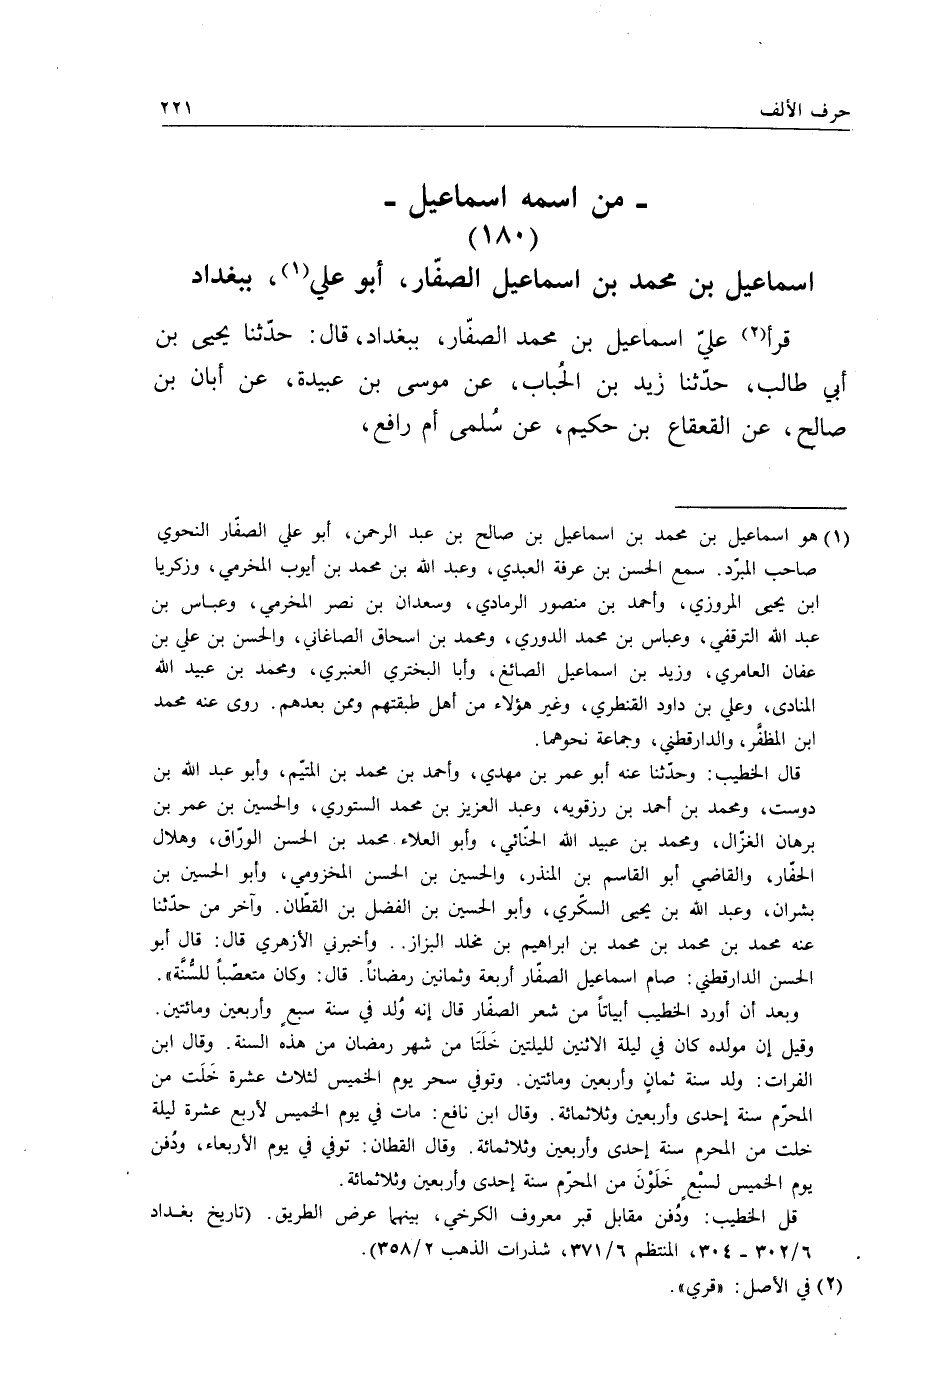 حرف الألف ٢٢١
ـ من اسمه اسماعيل ـ
(١٨٠)
اسماعيل بن محمد بن اسماعيل الصفّار، أبو علي(١)، ببغداد
قرأ(٢) عليّ اسماعيل بن محمد الصفّار، ببغداد، قال: حدّثنا يحيى بن
أبي طالب، حدّثنا زيد بن الحُباب، عن موسى بن عبيدة، عن أبان بن
صالح، عن القعقاع بن حكيم، عن سُلمى أم رافع،
(١) هو اسماعيل بن محمد بن اسماعيل بن صالح بن عبد الرحمن، أبو علي الصفّار النحوي
صاحب المبرّد. سمع الحسن بن عرفة العبدي، وعبد الله بن محمد بن أيوب المخرمي، وزكريا
ابن يحيى المروزي، وأحمد بن منصور الرمادي، وسعدان بن نصر المخرمي، وعباس بن
عبد الله الترقفي، وعباس بن محمد الدوري، ومحمد بن اسحاق الصاغاني، والحسن بن علي بن
عفان العامري، وزيد بن اسماعيل الصائغ، وأبا البختري العنبري، ومحمد بن عبيد الله
المنادى، وعلي بن داود القنطري، وغير هؤلاء من أهل طبقتهم وممن بعدهم. روى عنه محمد
ابن المظفَّر، والدارقطني، وجماعة نحوهما.
قال الخطيب: وحدّثنا عنه أبو عمر بن مهدي، وأحمد بن محمد بن المتيّم، وأبو عبد الله بن
دوست، ومحمد بن أحمد بن رزقويه، وعبد العزيز بن محمد الستوري، والحسين بن عمر بن
برهان الغزّال، ومحمد بن عبيد الله الحنّائي، وأبو العلاء محمد بن الحسن الورّاق، وهلال
الحفّار، والقاضي أبو القاسم بن المنذر، والحسين بن الحسن المخزومي، وأبو الحسين بن
بشران، وعبد الله بن يحيى السكّري، وأبو الحسين بن الفضل بن القطّان. وآخر من حدّثنا
عنه محمد بن محمد بن محمد بن ابراهيم بن مخلد البزاز.. وأخبرني الأزهري قال: قال أبو
الحسن الدارقطني: صام اسماعيل الصفّار أربعة وثمانين رمضاناً. قال: وكان متعصّباً للسُّنَّة».
وبعد أن أورد الخطيب أبياتاً من شعر الصفّار قال إنه وُلد في سنة سبعٍ وأربعين ومائتين.
وقيل إن مولده كان في ليلة الاثنين لليلتين خَلَتَا من شهر رمضان من هذه السنة. وقال ابن
الفرات: ولد سنة ثمانٍ وأربعين ومائتين. وتوفي سحر يوم الخميس لثلاث عشرة خَلَت من
المحرّم سنة إحدى وأربعين وثلاثمائة. وقال ابن نافع: مات في يوم الخميس لأربع عشرة ليلة
خلت من المحرم سنة إحدى وأربعين وثلاثمائة. وقال القطان: توفي في يوم الأربعاء، ودُفن
يوم الخميس لسبْعٍ خَلَوْنَ من المحرّم سنة إحدى وأربعين وثلاثمائة.
قل الخطيب: ودُفن مقابل قبر معروف الكرخي، بينهما عرض الطريق. (تاريخ بغداد
٣٠٢/٦ ـ ٣٠٤، المنتظم ٣٧١/٦، شذرات الذهب ٣٥٨/٢).
(٢) في الأصل: «قري».